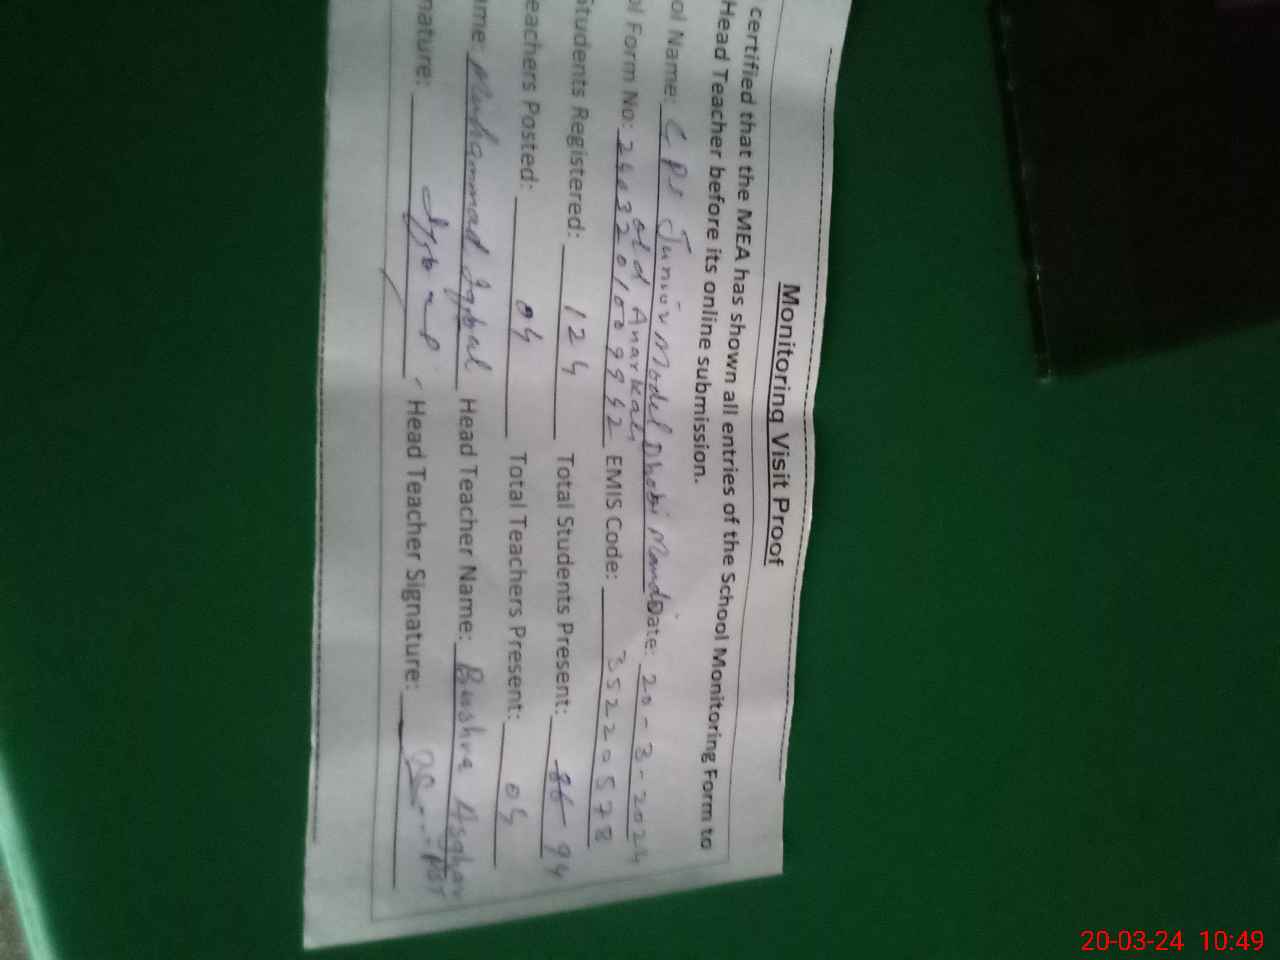 Monitoring Visit Proof
certified that the MEA has shown all entries of the School Monitoring Form to
Head Teacher before its online submission.
ol Name: GPS Junior Model Dhobi Mandi Date: 20-3-2024
old Anarkali
ol Form No: EMIS Code: 35220578
Students Registered: 124 Total Students Present: 94
eachers Posted: 04 Total Teachers Present: 04
ame: Muhammad Iqbal Head Teacher Name: Bushra Asghar
nature: Head Teacher Signature:
20-03-24 10:49